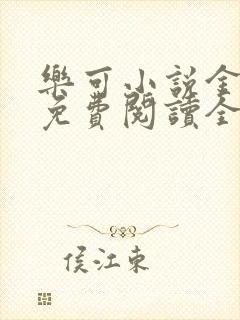 樂可小說全
免費閱讀全
侯江東